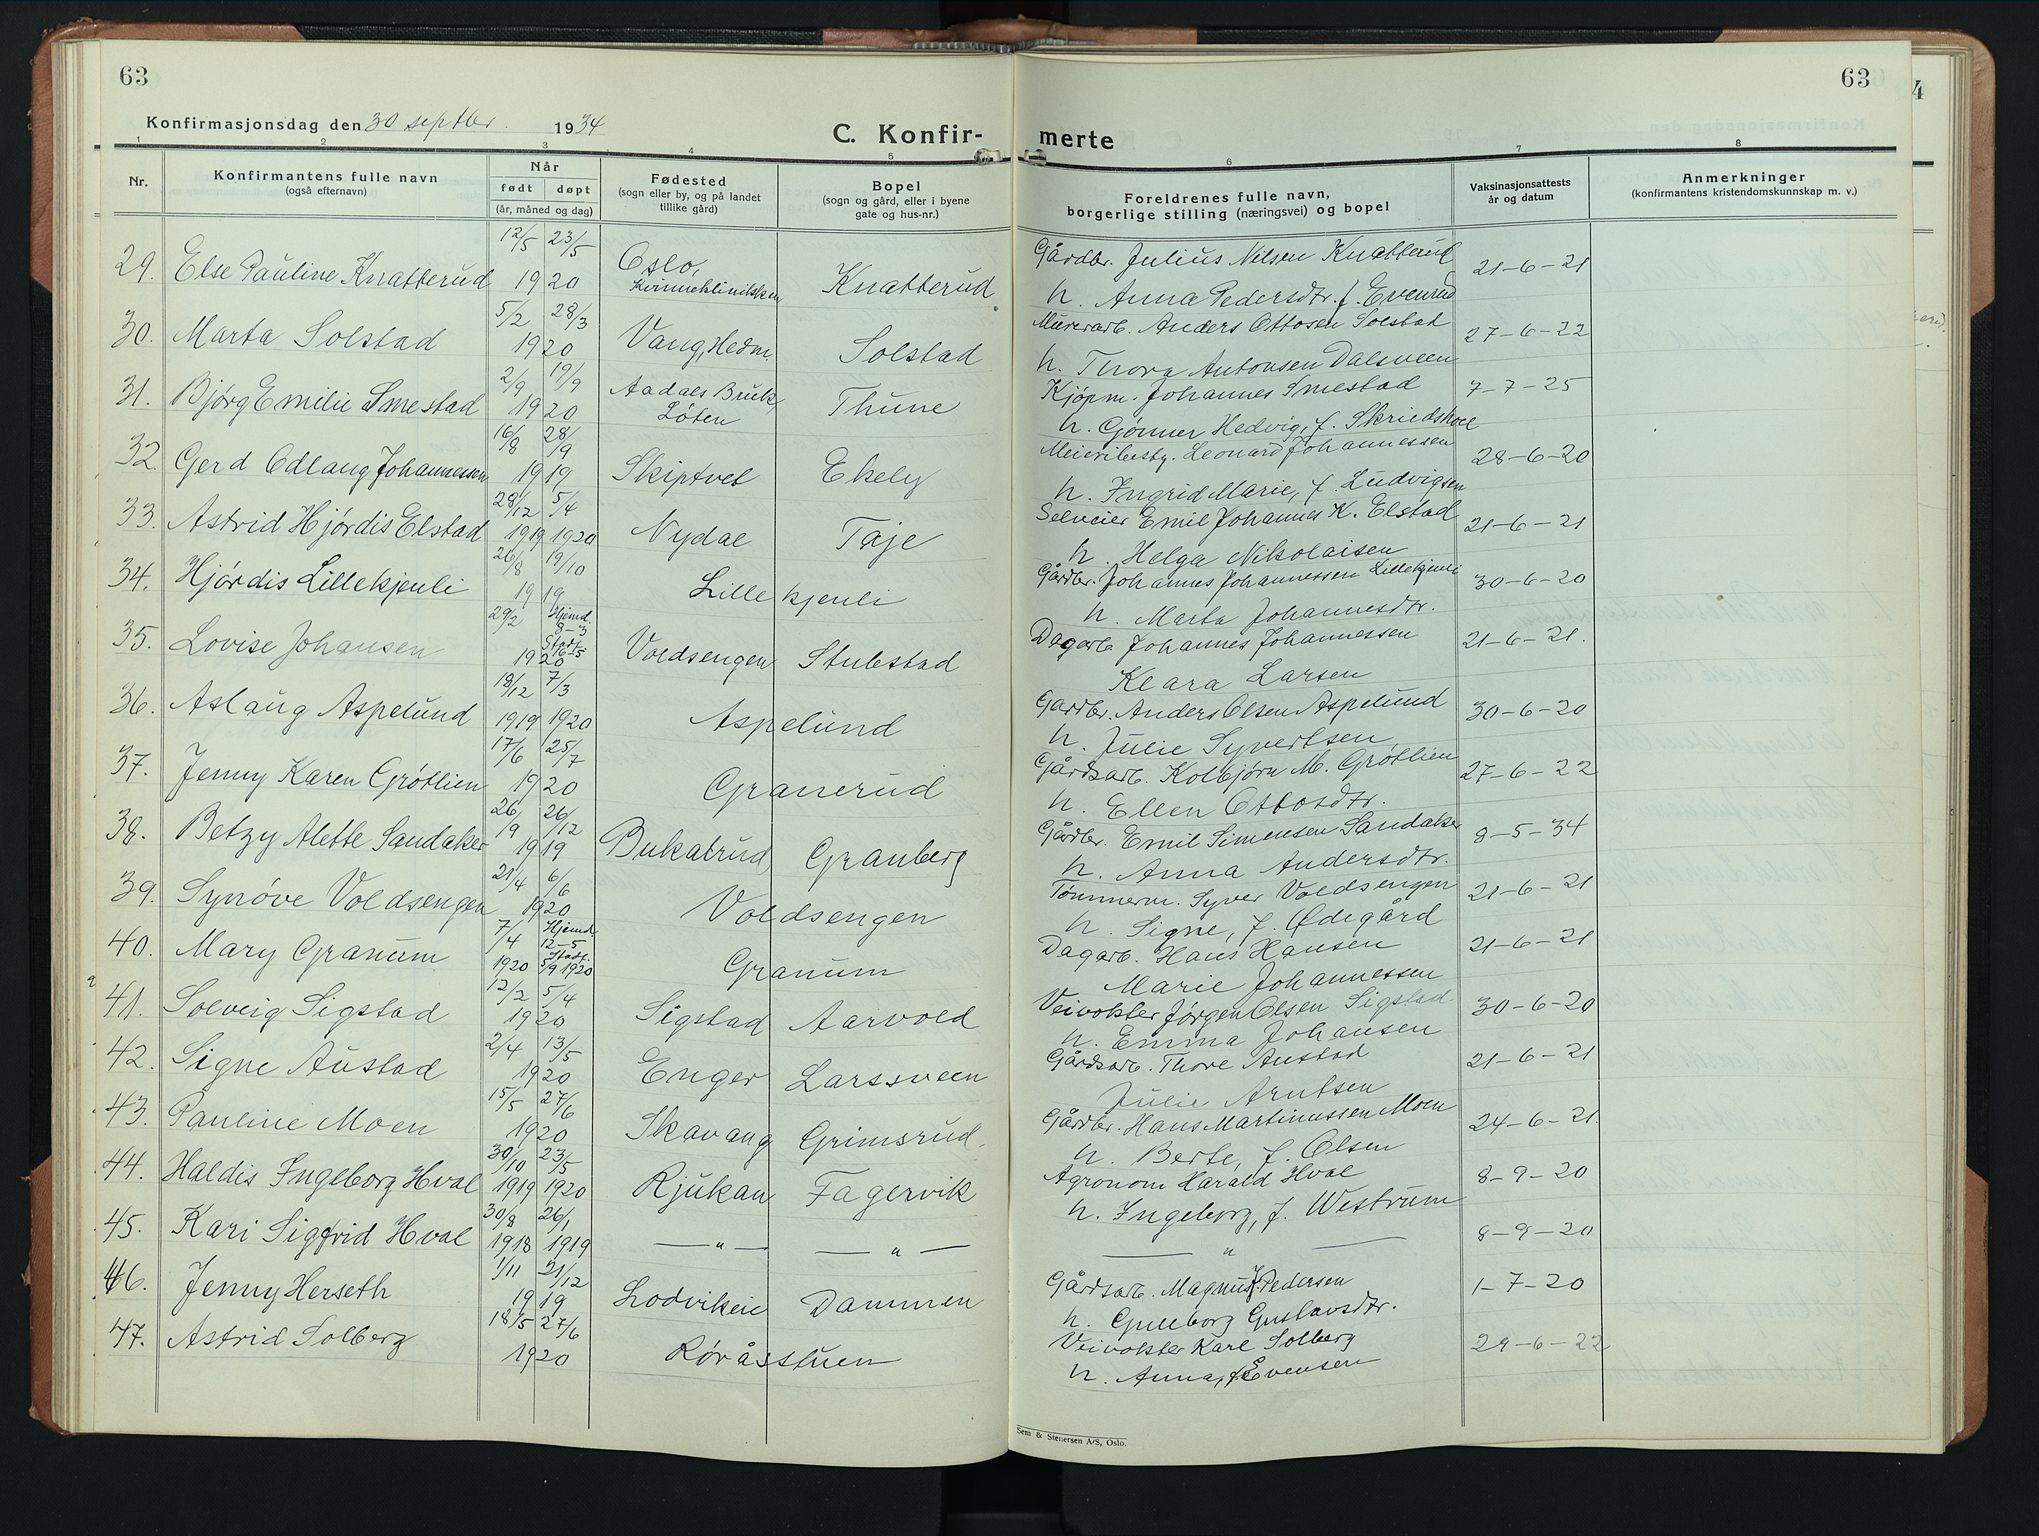 63
63
4
Konfirmasjonsdag den 30 septbr. 1934
C. Konfir-
merte
1 2 3 4 5 6 7 8
Nr.
Konfirmantens fulle navn
(også efternavn)
Når
født døpt
(år, måned og dag)
Fødested
(sogn eller by, og på landet
tillike gård)
Bopel
(sogn og gård, eller i byene
gate og hus-nr.)
Foreldrenes fulle navn,
borgerlige stilling (næringsvei) og bopel
Vaksinasjonsattests
år og datum
Anmerkninger
(konfirmantens kristendomskunnskap m. v.)
29. Else Pauline Knatterud 12/5 23/5 1920 Oslo, Kvinneklinikken Knatterud Gårdbr. Julius Nilsen Knatterud 21-6-21
h. Anna Pedersdtr. f. Evenrud
30. Marta Solstad 5/2 28/3 1920 Vang, Hedm. Solstad Murerarb. Anders Ottosen Solstad 27-6-22
h. Thora Antonsen Dalsveen
31. Bjørg Emilie Smestad 2/9 19/9 1920 Aadals Bruk Løten Thune Kjøpm. Johannes Smestad 7-7-25
h. Gønner Hedvig, f.
32. Gerd Odlaug Johannessen 16/8 28/9 1919 Skiptvet Ekely Meieribesty. Leonard Johannessen 28-6-20
h. Ingrid Marie, f. Ludvigsen
33. Astrid Hjørdis Elstad 28/12 5/4 1919 1920 Nydal Taje Selveier Emil Johannes K. Elstad 21-6-21
h. Helga Nikolaisen
34. Hjørdis Lillekjenli 26/8 19/10 1919 Lille kjenli Gårdbr. Johannes Johannessen Lillekjenli 30-6-20
h. Marta Johannesdtr.
35. Lovise Johansen 29/2 Hjemd. 8-3 Stadf. 16-5 1920 Voldsengen Stubstad Dagarb. Johannes Johannessen 21-6-21.
Klara Larsen
36. Aslaug Aspelund 18/12 7/3 1919 1920 Aspelund Gardbr. Anders Olsen Aspelund 30-6-20
h. Julie Syvertsen
37. Jenny Karen Grøtlien 17/6 25/7 1920 Granerud Gårdsarb. Kolbjørn M. Grøtlien 27-6-22
h. Ellen Ottosdtr.
38. Betzy Alette Sandaker 26/19 26/12 1919 Bukatrud Granberg Gårdbr. Emil Simensen Sandaker 8-5-34
h. Anna Andersdtr.
39. Synøve Voldsengen 21/4 6/6 1920 Voldsengen Tømmerm. Syver Voldsengen 21-6-21
h. Signe, f. Ødegård
40. Mary Granum 7/4 Hjemd. 12-5 Stadf. 1920 5/9 1920 Granum Dagarb. Hans Hansen 21-6-21
Marie Johannessen
41. Solveig Sigstad 12/2 5/4 1920 Sigstad Aarvold Veivokter Jørgen Olsen Sigstad 30-6-20
h. Emma Johansen
42. Signe Austad 2/4 13/5 1920 Enger Larssveen Gårdsarb. Thore Austad 21-6-21
Julie Arntsen
43. Pauline Moen 15/5 27/6 1920 Skavang Grimsrud. Gårdbr. Hans Martinussen Moen 24-6-21.
h. Berte, f. Olsen
44. Haldis Ingeborg Hval 30/10 23/5 1919 1920 Rjukan Fagervik Agronom Harald Hval 8-9-20
h. Ingeborg, f. Westrum
45. Kari Sigfrid Hval 30/8 26/1 1918 1919 — " — — " — — " — 8-9-20
46. Jenny Herseth 1/11 21/12 1919 Lodvikeie Dammen Gårdsarb. Magnus J. Pedersen 1-7-20
h. Gulleborg Gustavsdtr.
47. Astrid Solberg 18/5 27/6 1920 Røråsstuen Veivokter Karl Solberg 29-6-22
h. Anna, f. Evensen
Sem & Stenersen A/S, Oslo.